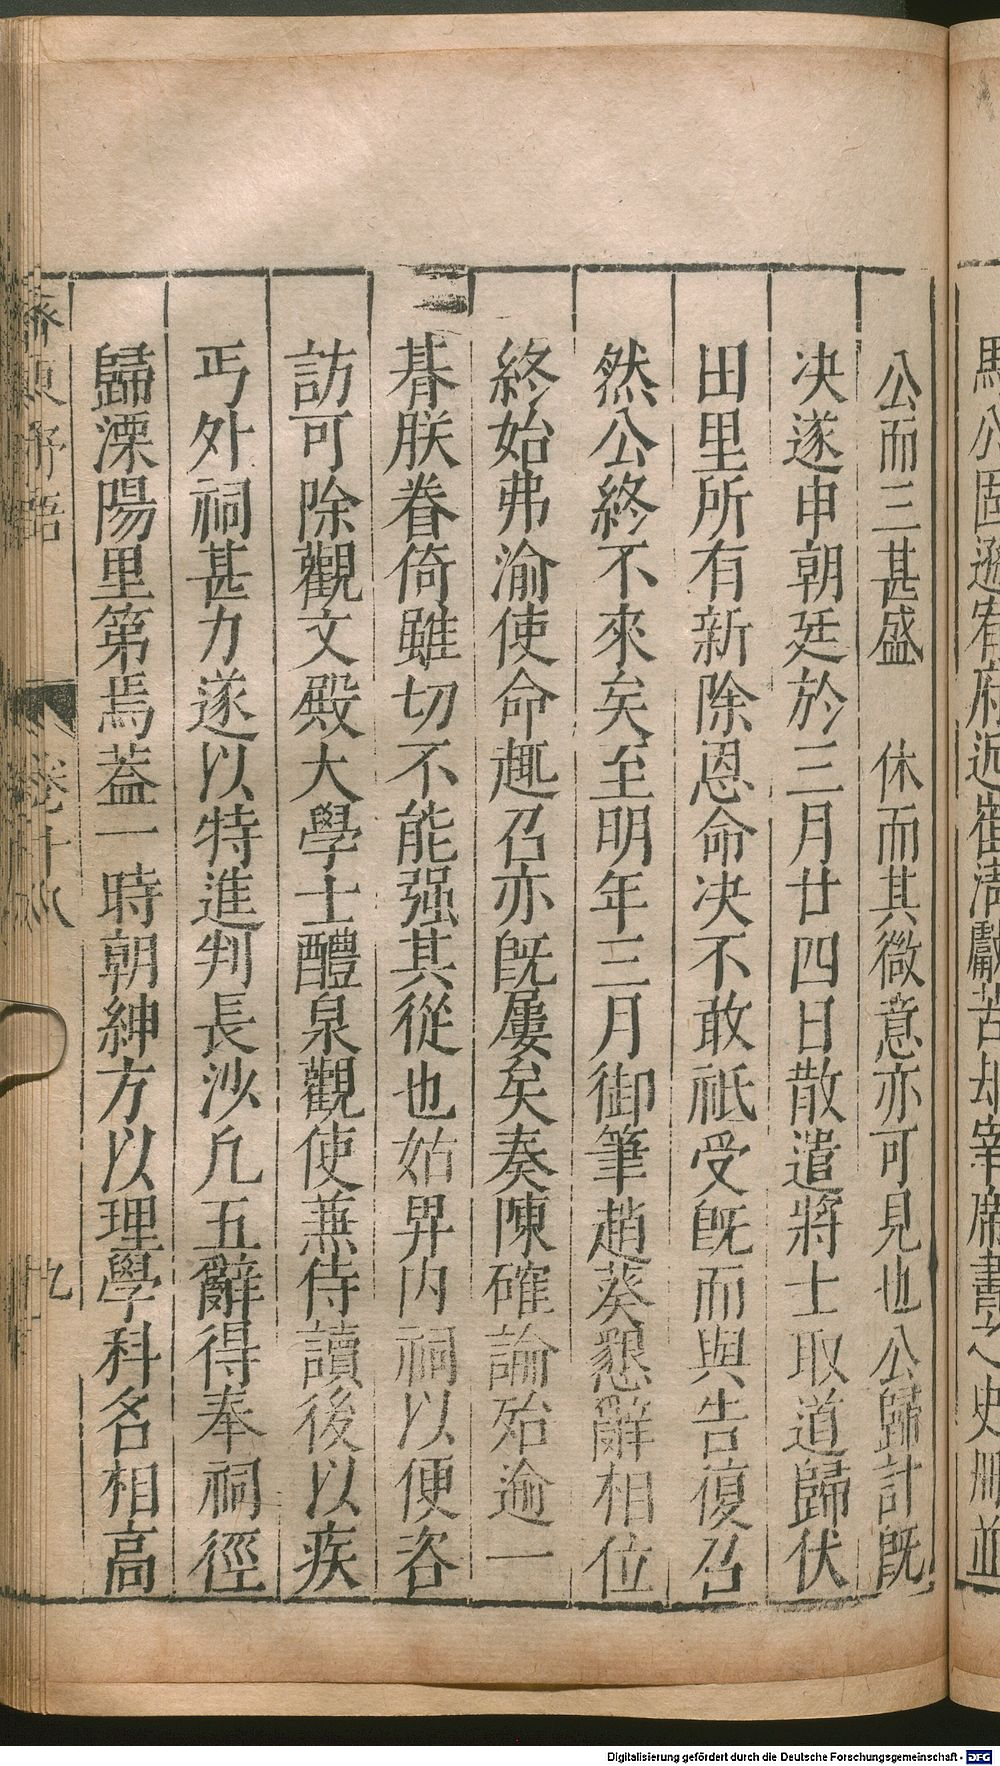 公而三甚盛　休而其微意亦可見也公歸計旣
决遂申朝廷於三月廿四日散遣將士取道歸伏
田里所有新除恩命决不敢祇受旣而與告復召
然公終不來矣至明年三月御筆趙葵懇辭相位
終始弗渝使命趣召亦旣屢矣奏陳確論殆逾一
朞朕眷倚雖切不能强其從也姑畀内祠以便咨
訪可除觀文殿大學士醴泉觀使兼侍讀後以疾
丐外祠甚力遂以特進判長沙凡五辭得奉祠徑
歸溧陽里第焉蓋一時朝紳方以理學科名相高
齊東野語
卷十八
九
Digitalisierung gefördert durch die Deutsche Forschungsgemeinschaft - DFG